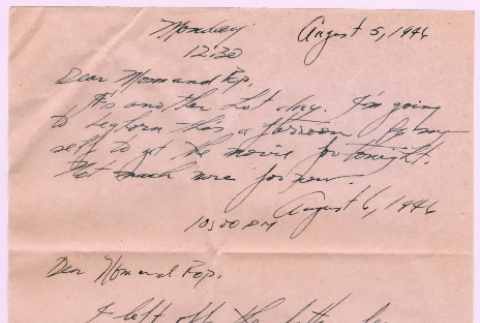 Monday August 5, 1946
12:30
Dear Mom and Pop.
It's another hot day. I'm going
to Leghorn this afternoon by my
self to get the movie for tonight.
Not much more for now.
August 6, 1946
10:00 PM
Dear Mom and Pop.
I left off the letter